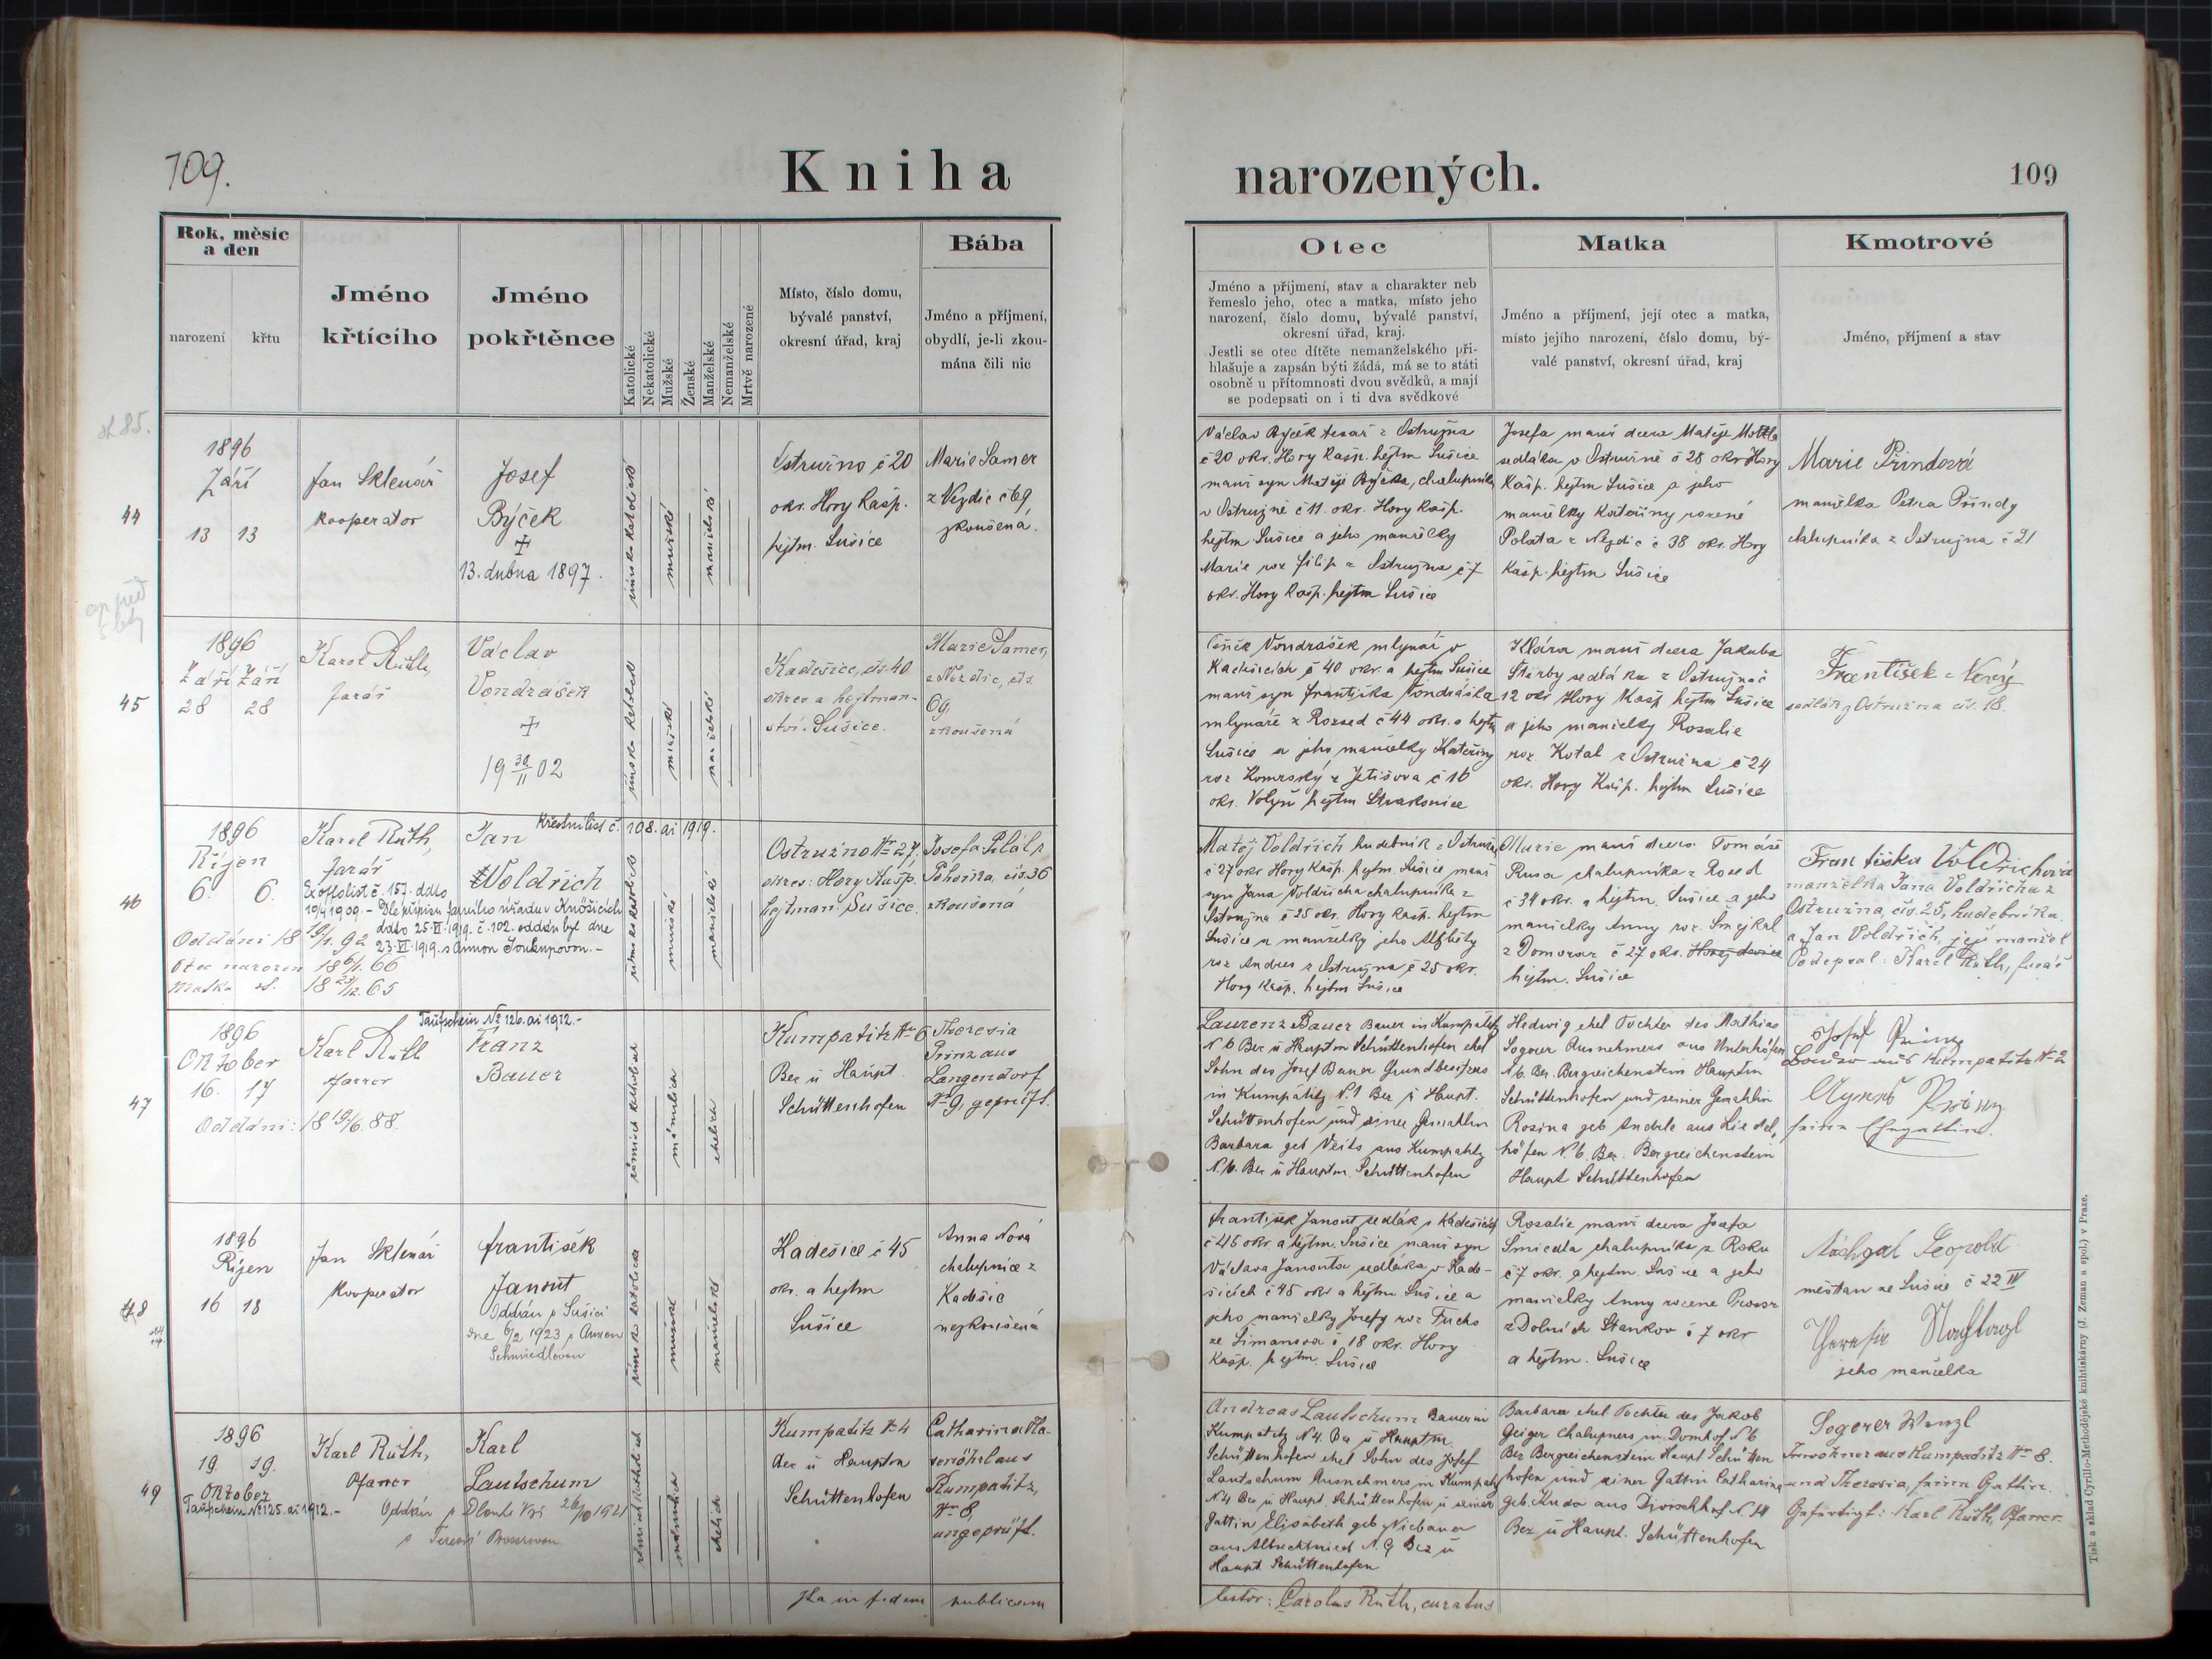 109.
Kniha
narozených.
109
Rok, měsíc
a den
narození
křtu
Jméno
křtícího
Jméno
pokřtěnce
Katolické
Nekatolické
Mužské
Ženské
Manželské
Nemanželské
Mrtvě narozené
Místo, číslo domu,
bývalé panství,
okresní úřad, kraj
Bába
Jméno a příjmení,
obydlí, je-li zkou-
mána čili nic
Otec
Jméno a příjmení, stav a charakter neb
řemeslo jeho, otec a matka, místo jeho
narození, číslo domu, bývalé panství,
okresní úřad, kraj.
Jestli se otec dítěte nemanželského při-
hlašuje a zapsán býti žádá, má se to státi
osobně u přítomnosti dvou svědků, a mají
se podepsati on i ti dva svědkové
Matka
Jméno a příjmení, její otec a matka,
místo jejího narození, číslo domu, bý-
valé panství, okresní úřad, kraj
Kmotrové
Jméno, příjmení a stav
44
1896
Září
13 13
Jan Sklenář
kooperator
Josef
Býček
+
13. dubna 1897.
římsko katolické
mužské
manželské
Ostružno č 20
okr. Hory Kašp.
hejtm. Sušice
Marie Samer
z Nezdic č 69
zkoušená.
Václav Býček tesař z Ostružna
č 20 okr. Hory Kašp. hejtm Sušice
manž syn Matěje Býčka, chalupníka
v Ostružně č 11. okr. Hory Kašp.
hejtm. Sušice a jeho manželky
Marie roz Filip z Ostružna č 7
okr. Hory Kašp. hejtm Sušice
Josefa manž dcera Matěje Mottla
sedláka v Ostružně č 28 okr Hory
Kašp. hejtm Sušice a jeho
manželky Kateřiny rozené
Polata z Nezdic č 38 okr. Hory
Kašp. hejtm Sušice
Marie Přindová
manželka Petra Přindy
chalupníka z Ostružna č 21
45
1896
Září Září
28 28
Karel Rüth,
farář
Václav
Vondrášek
+
19 30/11 02
římsko katolické
mužské
manželské
Kadešice, čís. 40
okres a hejtman-
ství: Sušice.
Marie Samer,
z Nezdic, čís.
69,
zkoušená
Vondrášek mlynář v
Kadešicích č 40 okr. a hejtm Sušice
manž syn Františka Vondráška
mlynáře z Rozsed č 44 okr. a hejtm
Sušice a jeho manželky Kateřiny
roz Komrský z Jetišova č 16
okr. Volyň hejtm Strakonice
Klára manž dcera Jakuba
Štěrby sedláka z Ostružna č
12 okr. Hory Kašp hejtm Sušice
a jeho manželky Rosalie
roz. Kotal z Ostružna č 24
okr. Hory Kašp. hejtm Sušice
František Nový
sedlák z Ostružna čís. 18.
46
1896
Říjen
6. 6.
Oddáni 18 19/1. 92
Otec narozen 18 6/1. 66
Matka 18 23/12. 65
Karel Rüth,
farář
Ex offo list č. 157. ddto
10/4 1909. - Dle přípisu farního úřadu v Kněžicích
ddto 25.VI.1919. č. 102. oddán byl dne
23.VI.1919. s Annou Soukupovou.-
Křestní list č. 108. ai 1919.
Jan
Woldřich
římsko katolické
mužské
manželské
Ostružno Nr 27,
okres: Hory Kašp.
hejtman: Sušice.
Josefa Pilát z
Pohorska, čís. 36
zkoušená
Matěj Voldřich hudebník z Ostružna
č 27 okr Hory Kašp. hejtm. Sušice manž
syn Jana Voldřicha chalupníka z
Ostružna č 25 okr. Hory Kašp. hejtm
Sušice a manželky jeho Alžběty
roz Andres z Ostružna č 25 okr.
Hory Kašp. hejtm Sušice
Marie manž dcera Tomáše
Rusa chalupníka z Rozsed
č 34 okr. a hejtm. Sušice a jeho
manželky Anny roz. Smejkal
z Domoraz č 27 okr.
hejtm. Sušice
Františka Voldřichová
manželka Jana Voldřicha z
Ostružna, čís. 25, hudebníka.
a Jan Voldřich, její manžel
Podepsal: Karel Rüth, farář
47
1896
Oktober
16. 17
Oddáni: 18 19/6. 88.
Taufschein No 126. ai 1912.-
Karl Rüth
Pfarrer
Franz
Bauer
römisch katholisch
männlich
ehelich
Kumpatitz No 6
Bez ü Haupt.
Schüttenhofen
Theresia
Prinz aus
Langendorf
No 9, geprüft.
Laurenz Bauer Bauer in Kumpatitz
N. 6 Bez ü Hauptm Schüttenhofen ehel
Sohn des Josef Bauer Grundbesitzers
in Kumpatitz N. 1 Bez ü Haupt.
Schüttenhofen und seiner Gemahlin
Barbara geb Veits aus Kumpatitz
N. 6. Bez ü Hauptm. Schüttenhofen
Hedwig ehel Tochter des Mathias
Sogorer Ausnehmers aus Unterhöfen
N. 6. Bez. Bergreichenstein Hauptm
Schüttenhofen und seiner Gemahlin
Rosina geb Andrle aus Liedel,
höfen N. 6. Bez. Bergreichenstein
Haupt Schüttenhofen
Josef
aus Kumpatitz No 2
Agnes
seine Ehegattin.
48
1896
Říjen
16 18
Jan Sklenář
Kooperator
František
Janout
Oddán v Sušici
dne 6/2 1923 s Annou
Schmiedlovou
římsko katolické
mužské
manželské
Kadešice č 45
okr. a hejtm
Sušice
Anna Nová
chalupnice z
Kadešic
nezkoušená
František Janout sedlák v Kadešicích
č 45 okr. a hejtm. Sušice manž syn
Václava Janouta sedláka v Kade-
šicích č 45 okr a hejtm. Sušice a
jeho manželky Josefy roz Fuchs
ze Šimanova č 18 okr. Hory
Kašp. hejtm. Sušice
Rosalie manž dcera Josefa
chalupníka z Roku
č 7 okr. a hejtm. Sušice a jeho
manželky Anny rozené
z Dolních Staňkov č 7 okr
a hejtm. Sušice
Leopold
měšťan ze Sušice č 22 IV
Theresie
jeho manželka
49
1896
19. 19.
Oktober
Taufschein No 125. ai 1912.-
Karl Rüth,
Pfarrer
Karl
Lautschum
Oddán v Dlouhé Vsi 26/10 1921
s Terezií
römisch katholisch
männlich
ehelich
Kumpatitz No 4
Bez ü Hauptm
Schüttenhofen
Catharina Ha-
aus
Kumpatitz,
No 8,
ungeprüft.
Andreas Lautschum Bauer in
Kumpatitz N 4. Bez ü Hauptm.
Schüttenhofen ehel Sohn des Josef
Lautschum Ausnehmers in Kumpatitz
N. 4 Bez ü Haupt. Schüttenhofen ü seiner
Gattin Elisabeth geb. Niebauer
aus Albrechtsried N. 9 Bez ü
Haupt Schüttenhofen
Barbara ehel. Tochter des Jakob
Geiger Chalupners in Domhof N. 6
Bez Bergreichenstein Haupt Schütten
hofen und seiner Gattin Catharina
geb. Kuda aus N. 14
Bez ü Haupt. Schüttenhofen
Sogerer Wenzl
aus Kumpatitz No 8.
und Theresia, seine Gattin.
Gefertigt: Karl Rüth, Pfarrer.
Ita in fidem publicam
testor: Carolus Rüth, curatus
Tisk a sklad Cyrillo-Methodějské knihtiskárny (J. Zeman a spol.) v Praze.